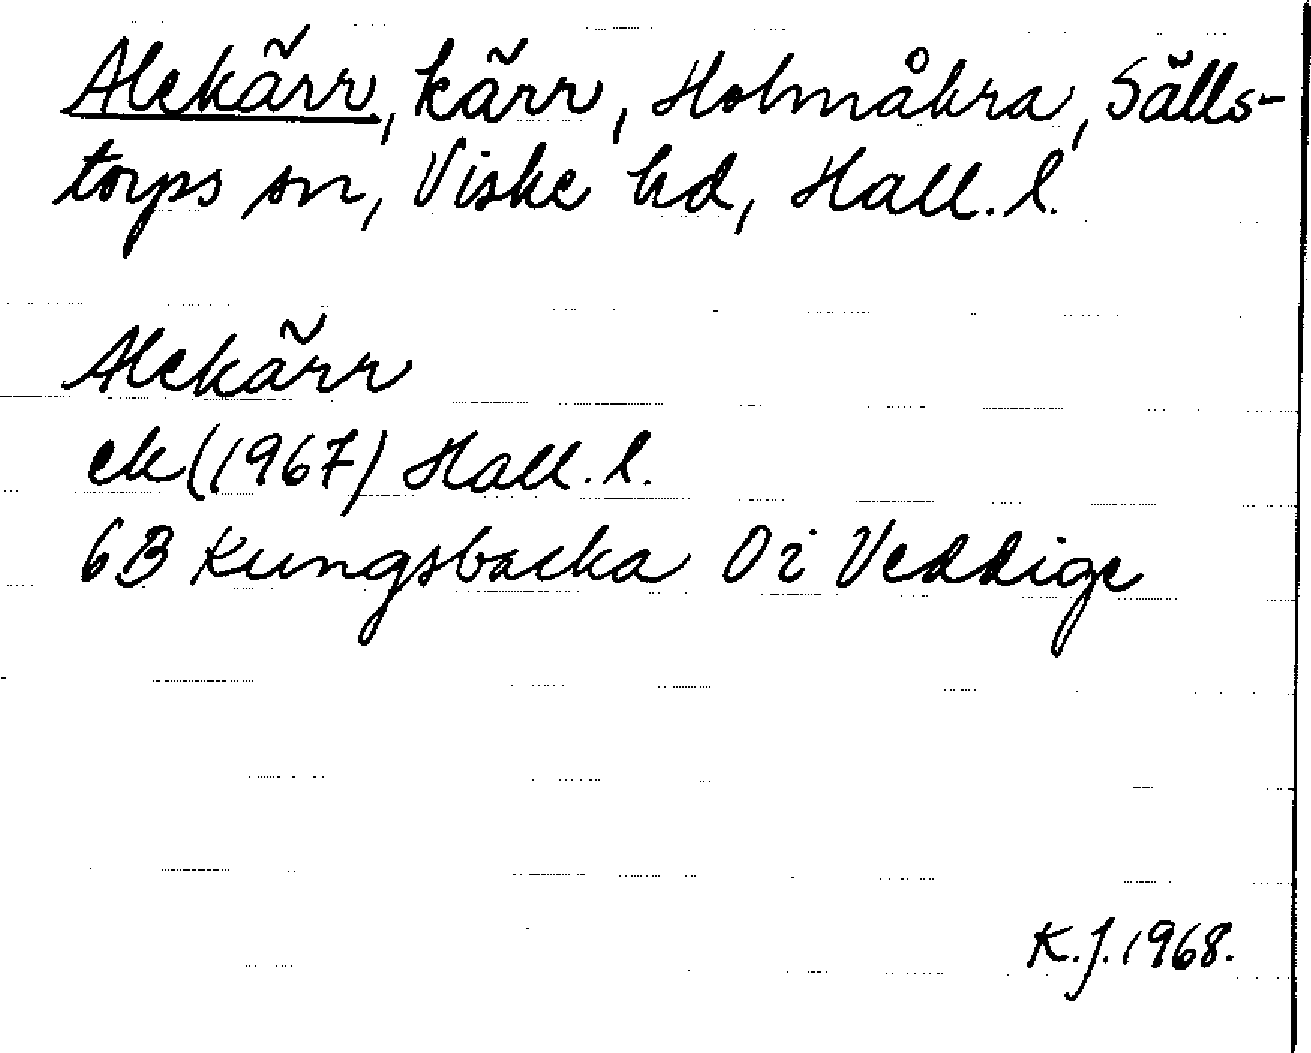 Alekärr, kärr, Holmåkra, Sälls-
torps sn, Viske hd, Hall. l.
Alekärr
ek (1967) Hall. l.
6B Kungsbacka 0 i Veddige
K.J. 1968.